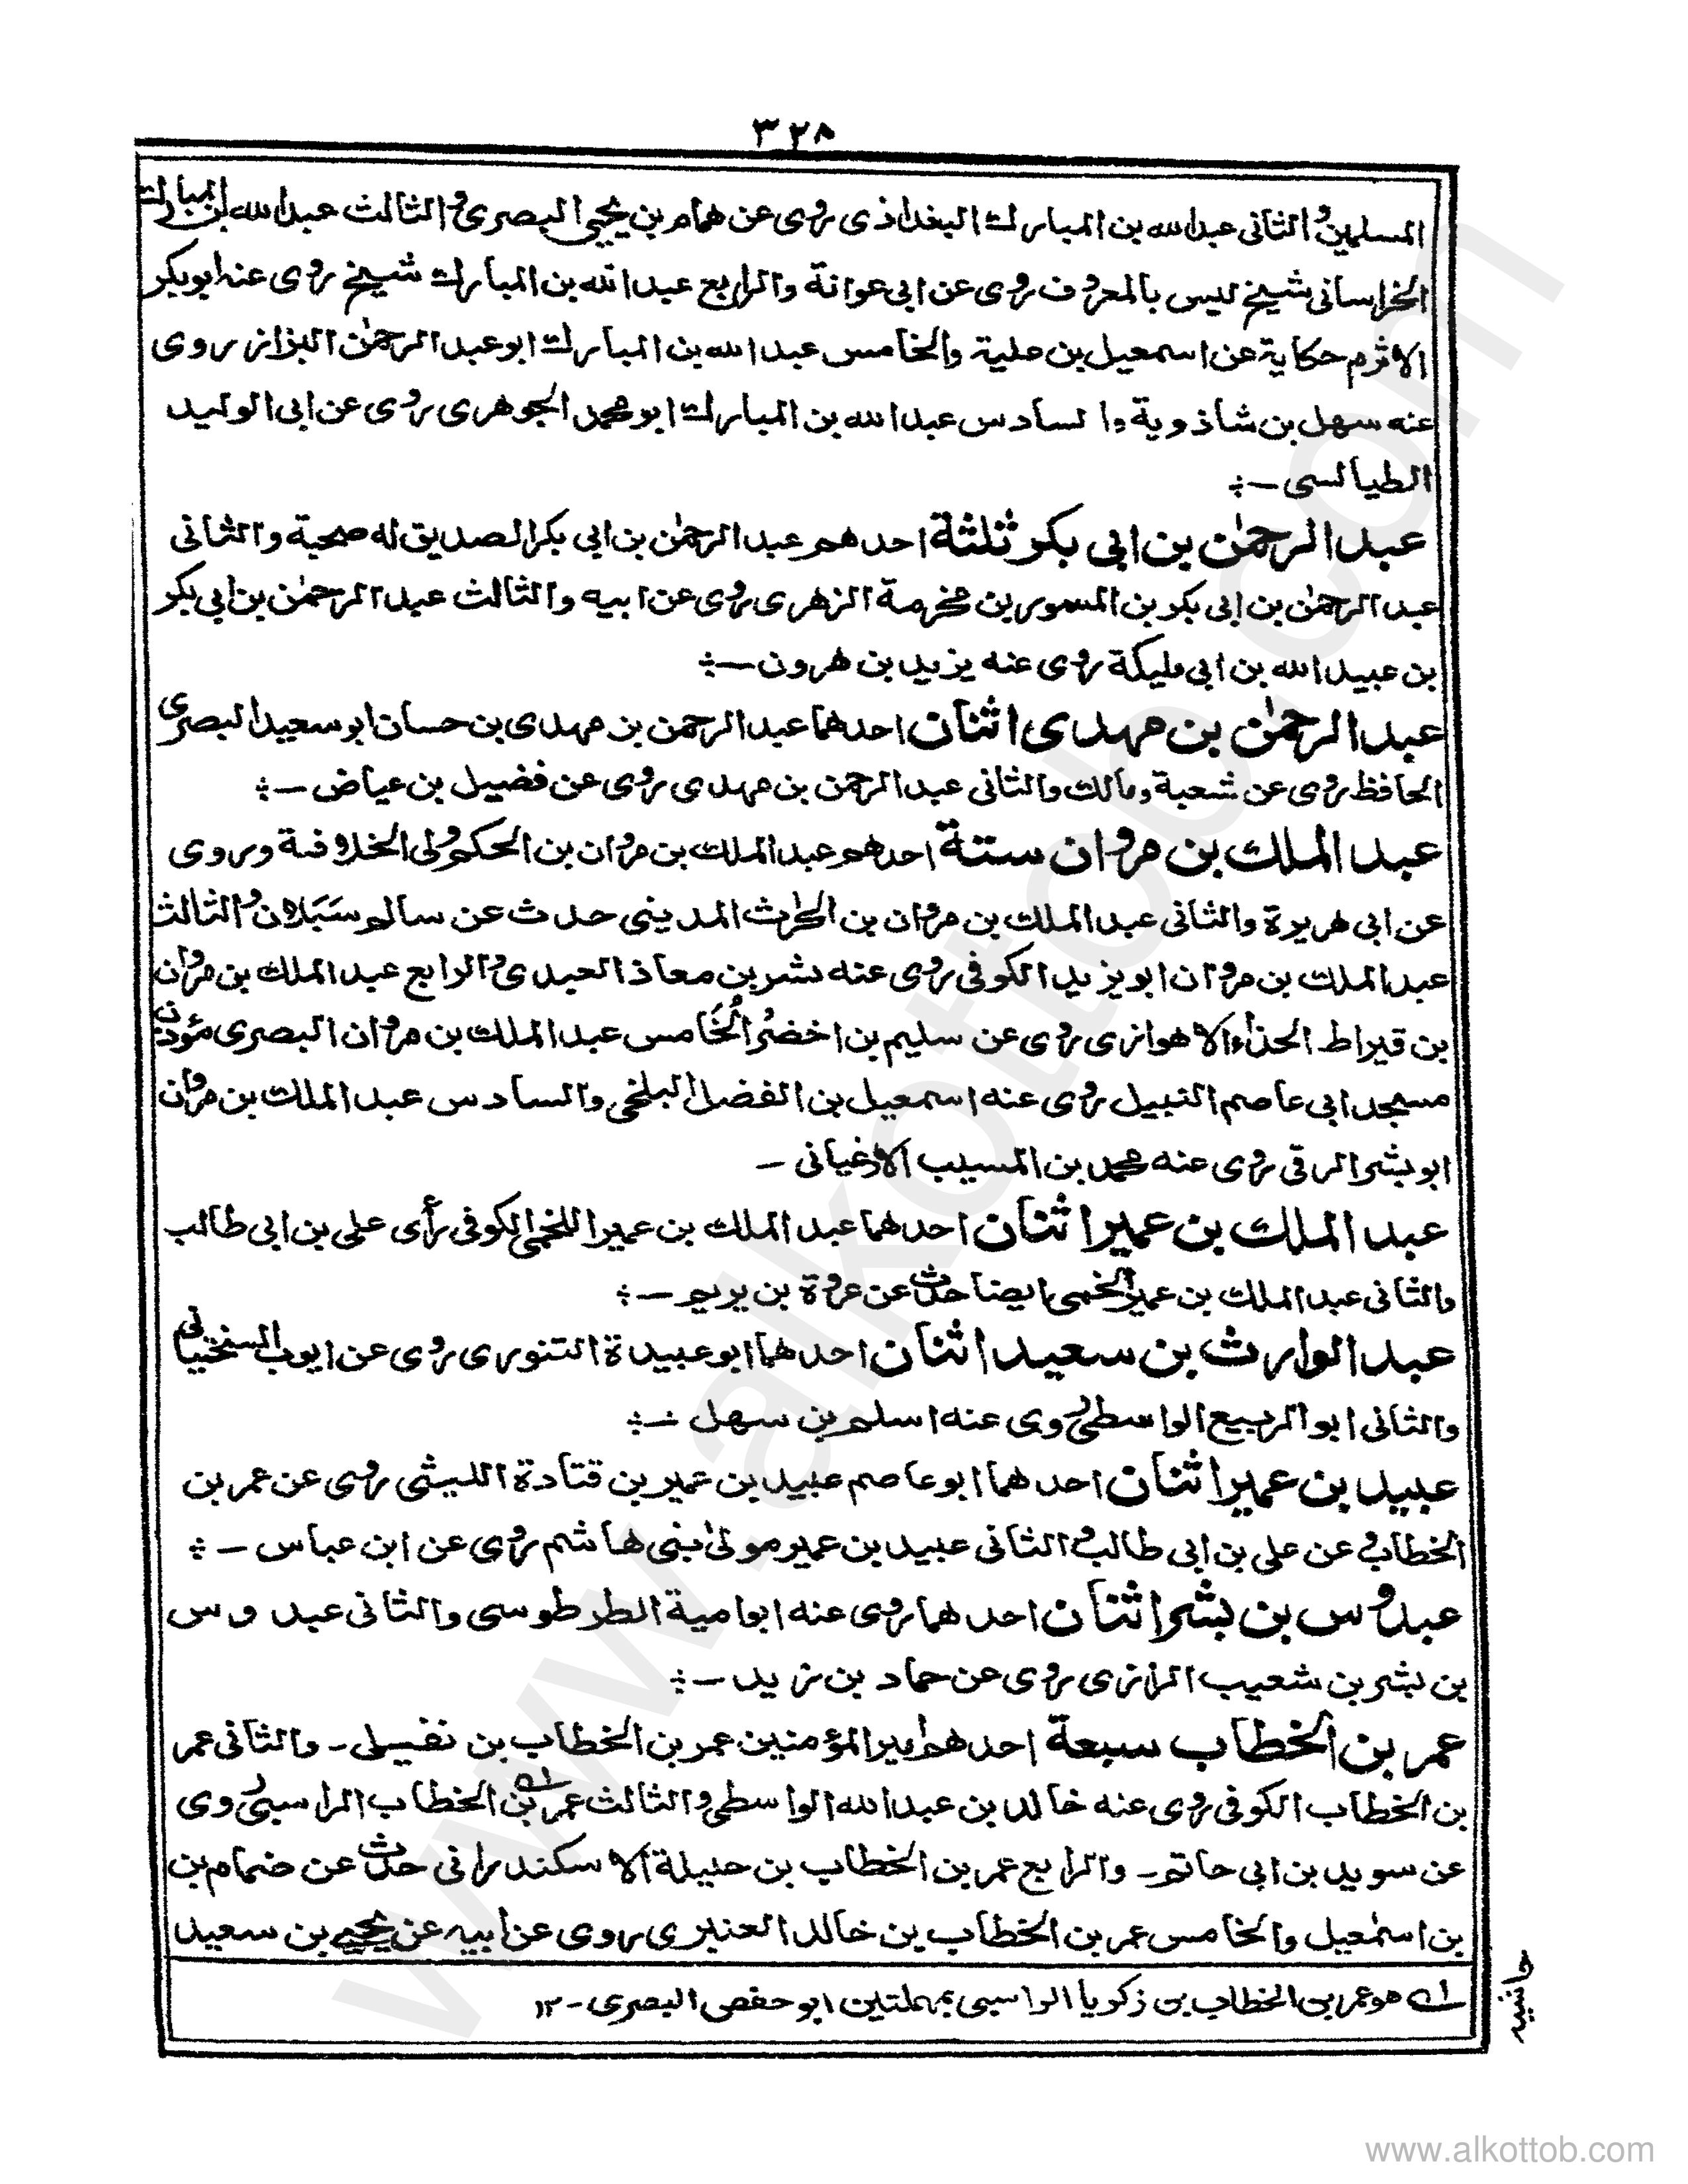 ٣٢٨
المسلمين والثانى عبدالله بن المبارك البغداذى روى عن همام بن يحيى البصرى والثالث عبدالله بن المبارك
الخراسانى شيخ ليس بالمعروف روى عن ابى عوانة والرابع عبدالله بن المبارك شيخ روى عنه ابوبكر
الاثرم حكاية عن اسمعيل بن علية والخامس عبدالله بن المبارك ابوعبدالرحمٰن البزاز روى
عنه سهل بن شاذوية والسادس عبدالله بن المبارك ابومحمد الجوهرى روى عن ابى الوليد
الطيالسى -؞
عبدالرحمٰن بن ابى بكر ثلثة احدهم عبدالرحمٰن بن ابى بكر الصديق له صحبة والثانى
عبدالرحمٰن بن ابى بكر بن المسور بن مخرمة الزهرى روى عن ابيه والثالث عبدالرحمٰن بن ابى بكر
بن عبيدالله بن ابى مليكة روى عنه يزيد بن هرون -؞
عبدالرحمٰن بن مهدى اثنان احدهما عبدالرحمن بن مهدى بن حسان ابوسعيد البصرى
الحافظ روى عن شعبة ومالك والثانى عبدالرحمن بن مهدى روى عن فضيل بن عياض -؞
عبدالملك بن مروان ستة احدهم عبدالملك بن مروان بن الحكم ولى الخلافة وروى
عن ابى هريرة والثانى عبدالملك بن مروان بن الحٰرث المدينى حدث عن سالم سَبَلان والثالث
عبدالملك بن مروان ابويزيد الكوفى روى عنه بشر بن معاذ العبدى والرابع عبدالملك بن مروان
بن قيراط الحذاء الاهوازى روى عن سليم بن اخضر والخامس عبدالملك بن مروان البصرى مؤذن
مسجد ابى عاصم النبيل روى عنه اسمعيل بن الفضل البلخى والسادس عبدالملك بن مروان
ابوبشر الرقى روى عنه محمد بن المسيب الارغيانى -
عبدالملك بن عمير اثنان احدهما عبدالملك بن عمير اللخمى الكوفى رأى على بن ابى طالب
والثانى عبدالملك بن عمير اللخمى ايضا حدث عن عروة بن يريم -؞
عبدالوارث بن سعيد اثنان احدهما ابوعبيدة التنورى روى عن ايوب السختيانى
والثانى ابوالربيع الواسطى روى عنه اسلم بن سهل -؞
عبيد بن عمير اثنان احدهما ابوعاصم عبيد بن عمير بن قتادة الليثى روى عن عمر بن
الخطاب وعن على بن ابى طالب والثانى عبيد بن عمير مولىٰ بنى هاشم روى عن ابن عباس -؞
عبدوس بن بشر اثنان احدهما روى عنه ابوامية الطرطوسى والثانى عبدوس
بن بشر بن شعيب الرازى روى عن حماد بن زيد -؞
عمر بن الخطاب سبعة احدهم امير المؤمنين عمر بن الخطاب بن نفيل - والثانى عمر
بن الخطاب الكوفى روى عنه خالد بن عبدالله الواسطى والثالث عمر بن الخطاب ١ الراسبى روى
عن سويد بن ابى حاتم - والرابع عمر بن الخطاب بن حنيلة الاسكندرانى حدث عن ضمام بن
بن اسمٰعيل والخامس عمر بن الخطاب بن خالد العنبرى روى عن ابيه عن يحيى بن سعيد
١ هو عمر بن الخطاب بن زكريا الراسبى بمهملتين ابوحفص البصرى - ١٢
حاشيه
www.alkottob.com
www.alkottob.com